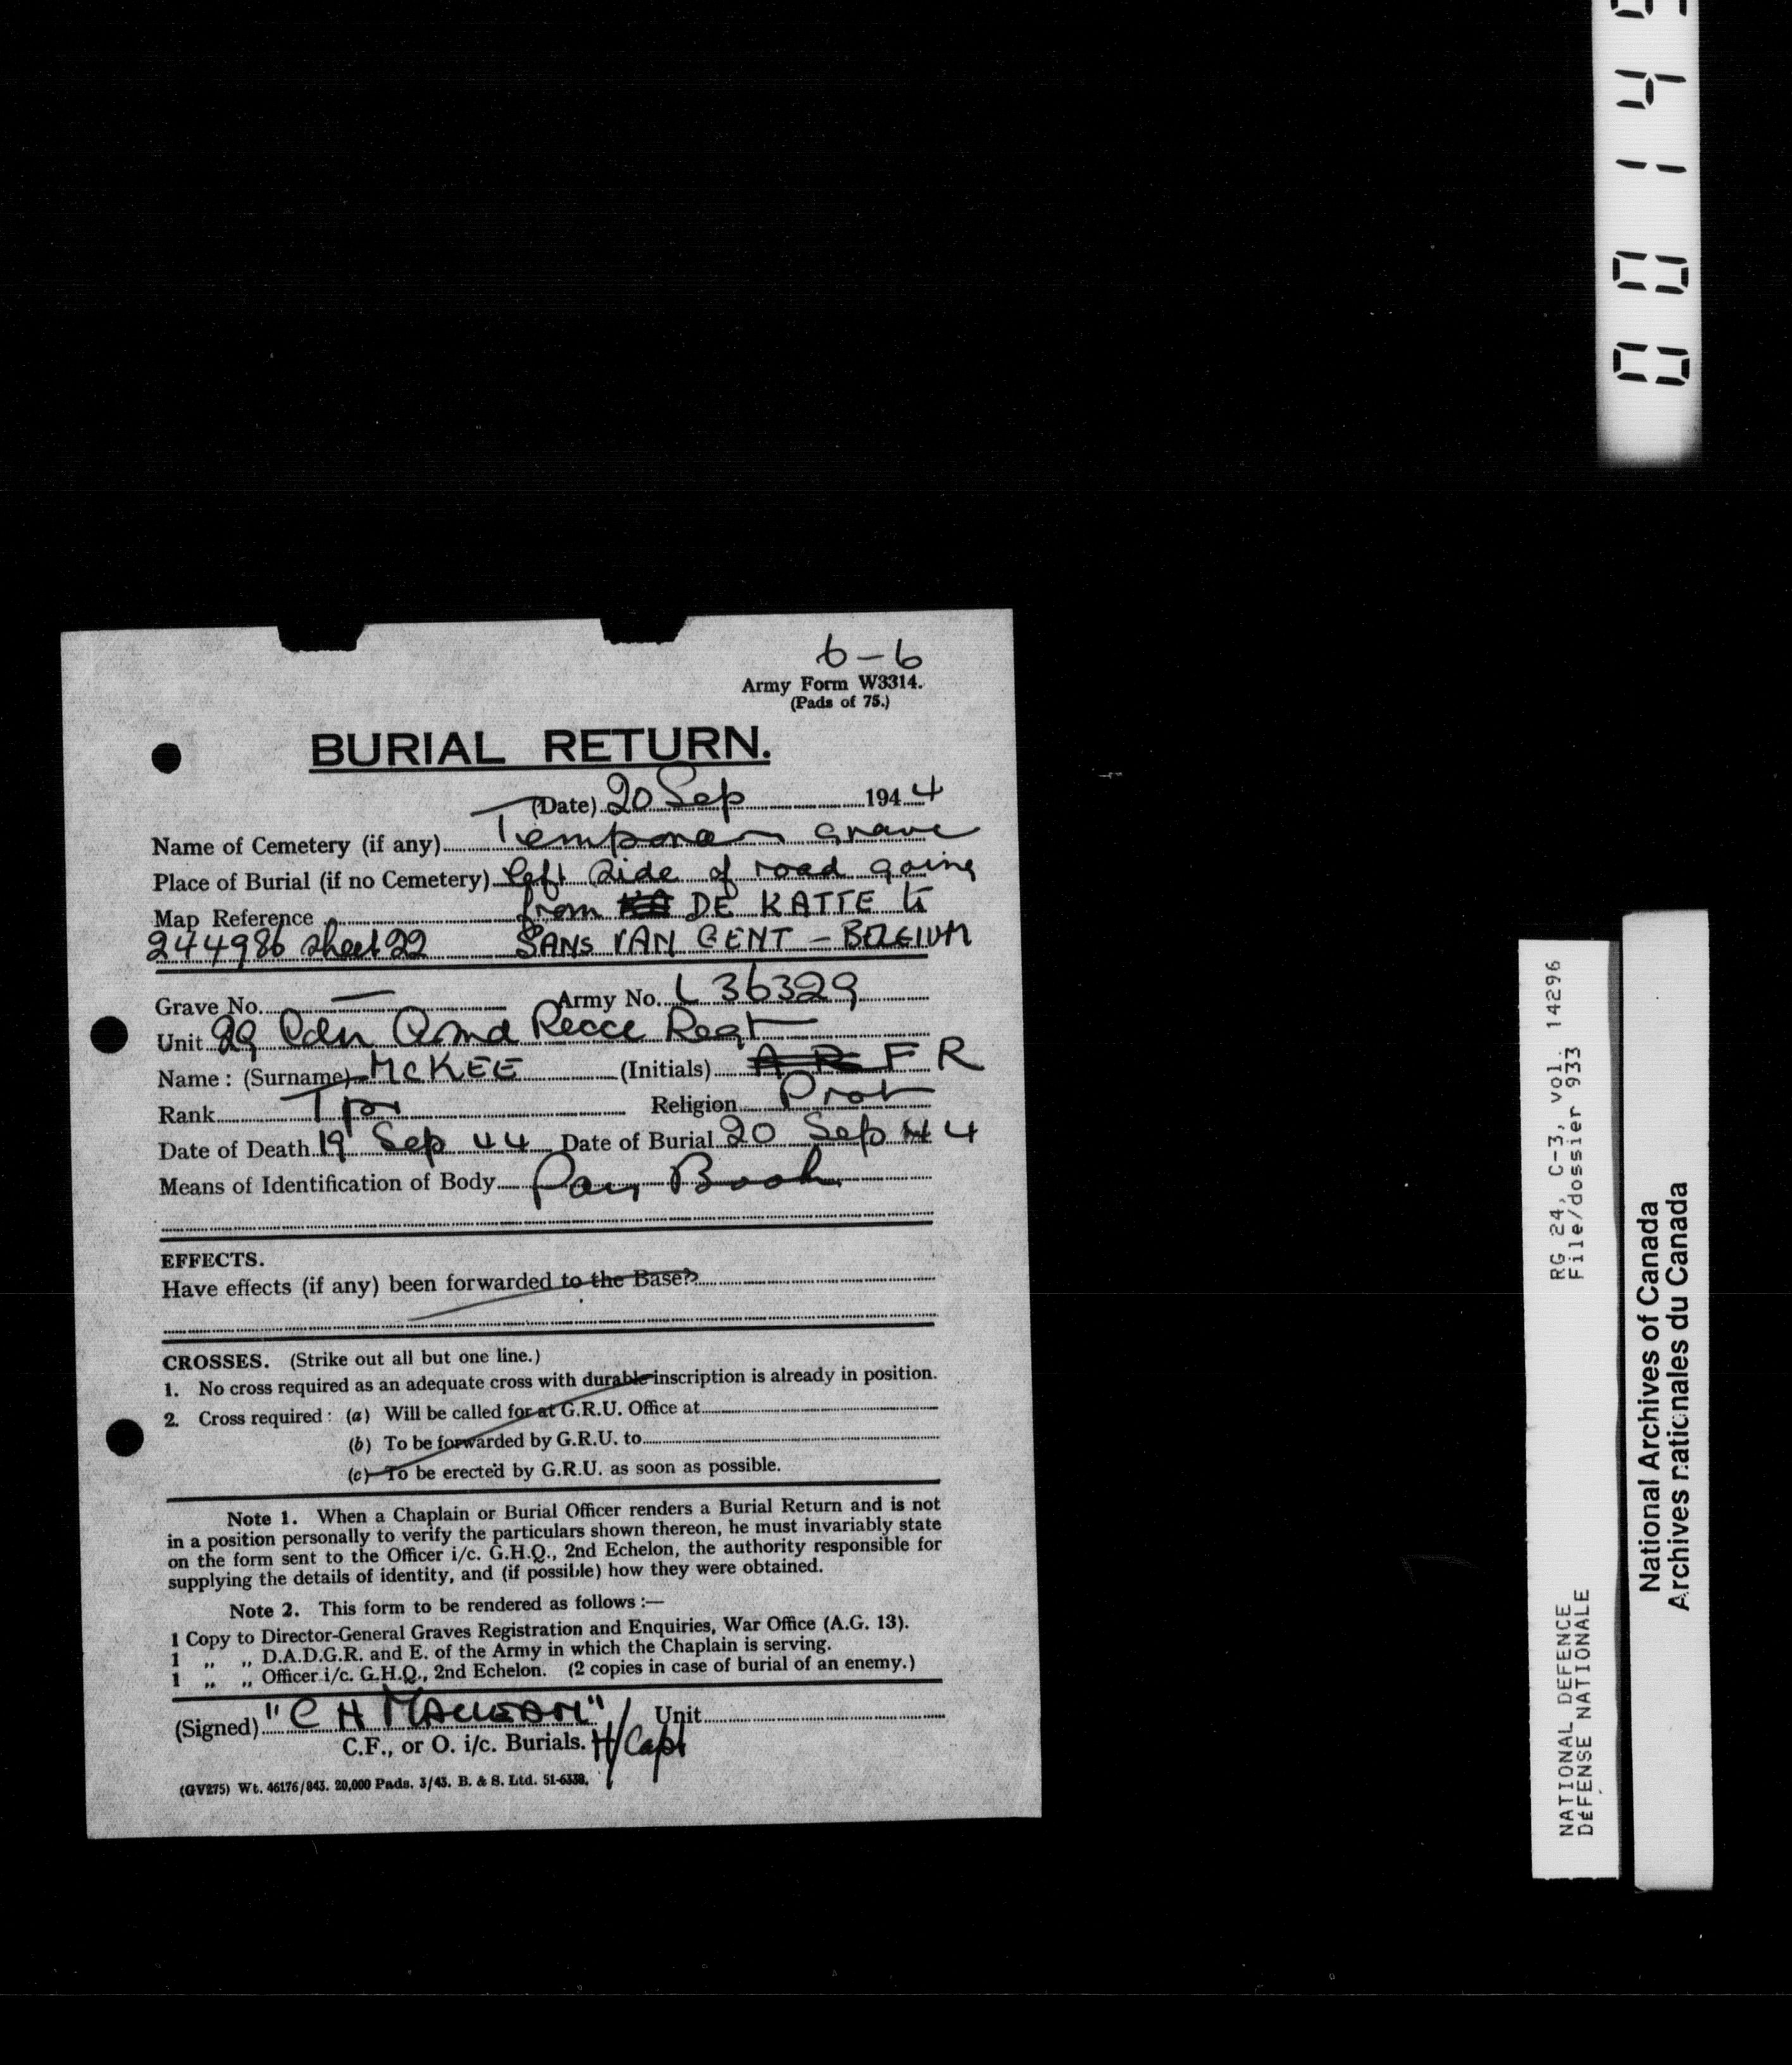 6-6
Army Form W3314.
(Pads of 75.)
BURIAL RETURN.
(Date) 20 Sep 1944
Name of Cemetery (if any) Temporary grave
Place of Burial (if no Cemetery) left side of road going
Map Reference from DE KATTE to
244986 sheet 22 SANS VAN GENT - BELGIUM
Grave No. — Army No. L 36329
Unit 29 Cdn Armd Recce Regt
Name: (Surname) McKEE (Initials) A R F R
Rank Tpr Religion Prot
Date of Death 19 Sep 44 Date of Burial 20 Sep 44
Means of Identification of Body Pay Book
EFFECTS.
Have effects (if any) been forwarded to the Base?
CROSSES. (Strike out all but one line.)
1. No cross required as an adequate cross with durable inscription is already in position.
2. Cross required: (a) Will be called for at G.R.U. Office at
(b) To be forwarded by G.R.U. to
(c) To be erected by G.R.U. as soon as possible.
Note 1. When a Chaplain or Burial Officer renders a Burial Return and is not
in a position personally to verify the particulars shown thereon, he must invariably state
on the form sent to the Officer i/c. G.H.Q., 2nd Echelon, the authority responsible for
supplying the details of identity, and (if possible) how they were obtained.
Note 2. This form to be rendered as follows :—
1 Copy to Director-General Graves Registration and Enquiries, War Office (A.G. 13).
1 „ „ D.A.D.G.R. and E. of the Army in which the Chaplain is serving.
1 „ „ Officer i/c. G.H.Q., 2nd Echelon. (2 copies in case of burial of an enemy.)
(Signed) "C H Maclean" Unit
C.F., or O. i/c. Burials. H/Capt
(GV275) Wt. 46176/843. 20,000 Pads. 3/43. B. & S. Ltd. 51-6338.
NATIONAL DEFENCE RG 24, C-3, vol. 14296
DéFENSE NATIONALE File/dossier 933
National Archives of Canada
Archives nationales du Canada
0014